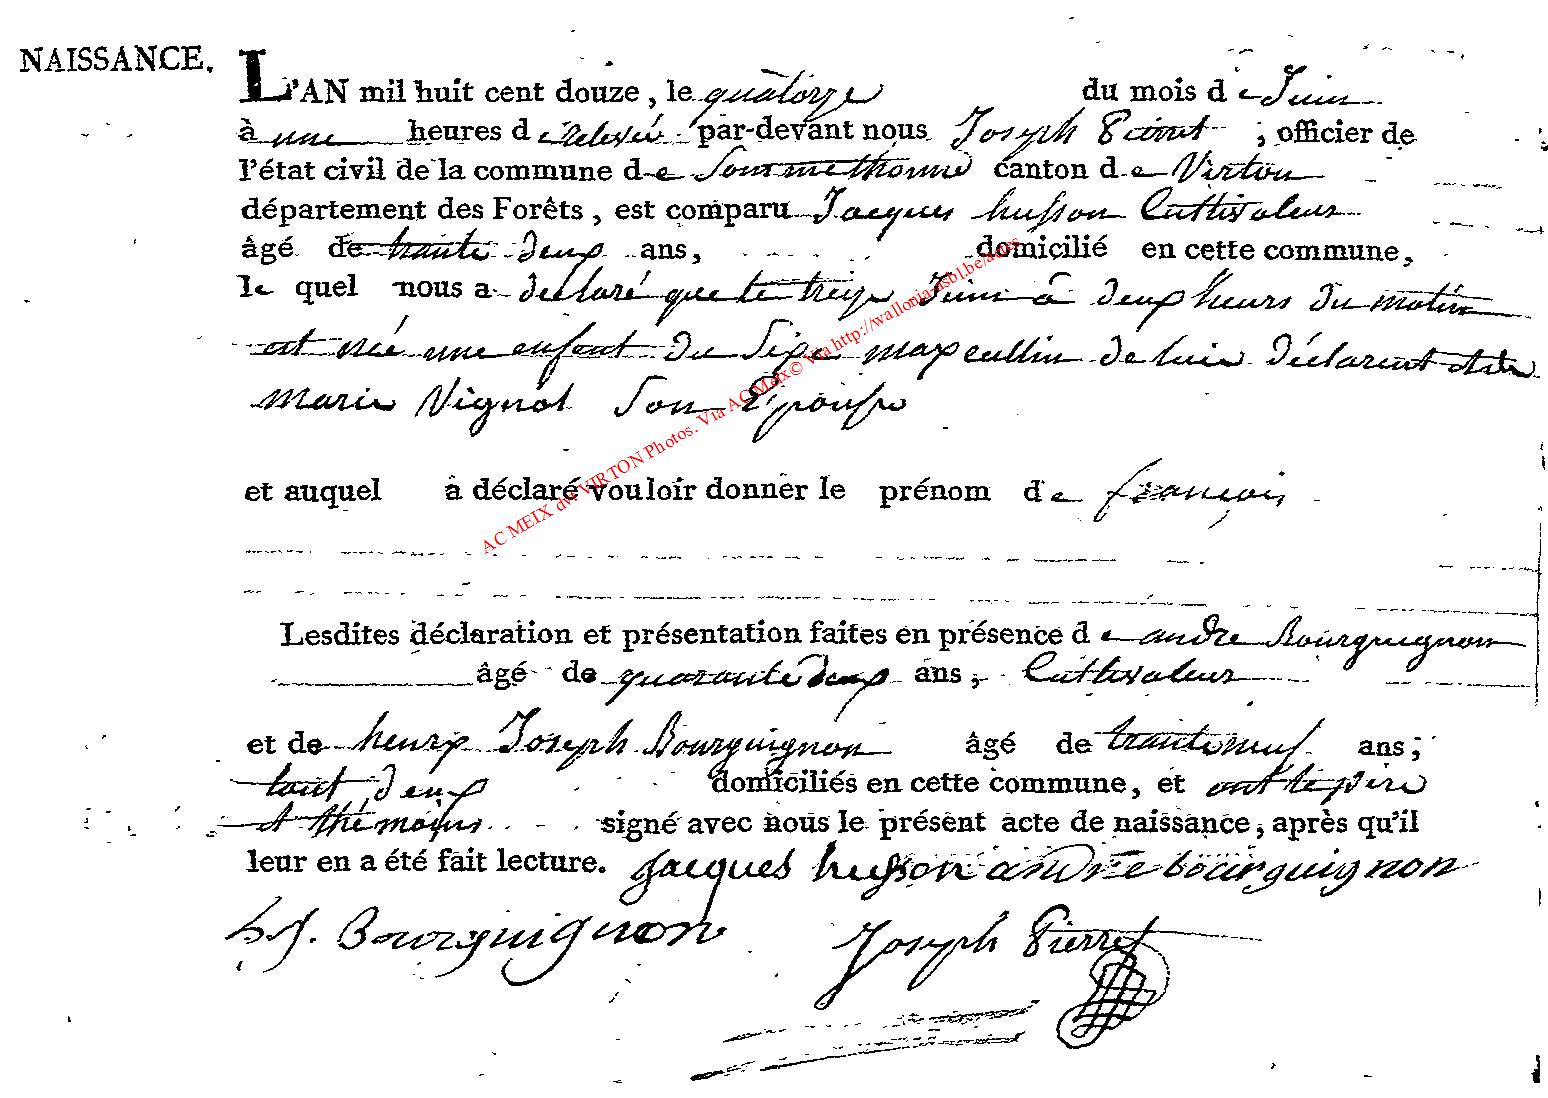 NAISSANCE.
L'AN mil huit cent douze, le quatorze du mois de Juin
à une heures de relevé par-devant nous Joseph Pierret, officier de
l'état civil de la commune de Sommethonne canton de Virton
département des Forêts, est comparu Jacques husson Cultivateur
âgé de trante deux ans, domicilié en cette commune,
le quel nous a declaré que le treize Juin à deux heurs du matin
est née une enfant du Sexe maxcullin de luie déclarent et de
marie Vignot Son Epousse
et auquel a déclaré vouloir donner le prénom de françois
Lesdites déclaration et présentation faites en présence de andre Bourguignon
âgé de quarante deux ans, Cultivateur
et de henry Joseph Bourguignon âgé de trante neuf ans;
tout deux domiciliés en cette commune, et ont le père
et thémoins signé avec nous le présent acte de naissance, après qu'il
leur en a été fait lecture. Jacques husson andré bourguignon
h. J. Bourguignon Joseph Pierret
AC MEIX dvt VIRTON Photos. Via AC Meix© Via http://wallonia-asbl.be/actes